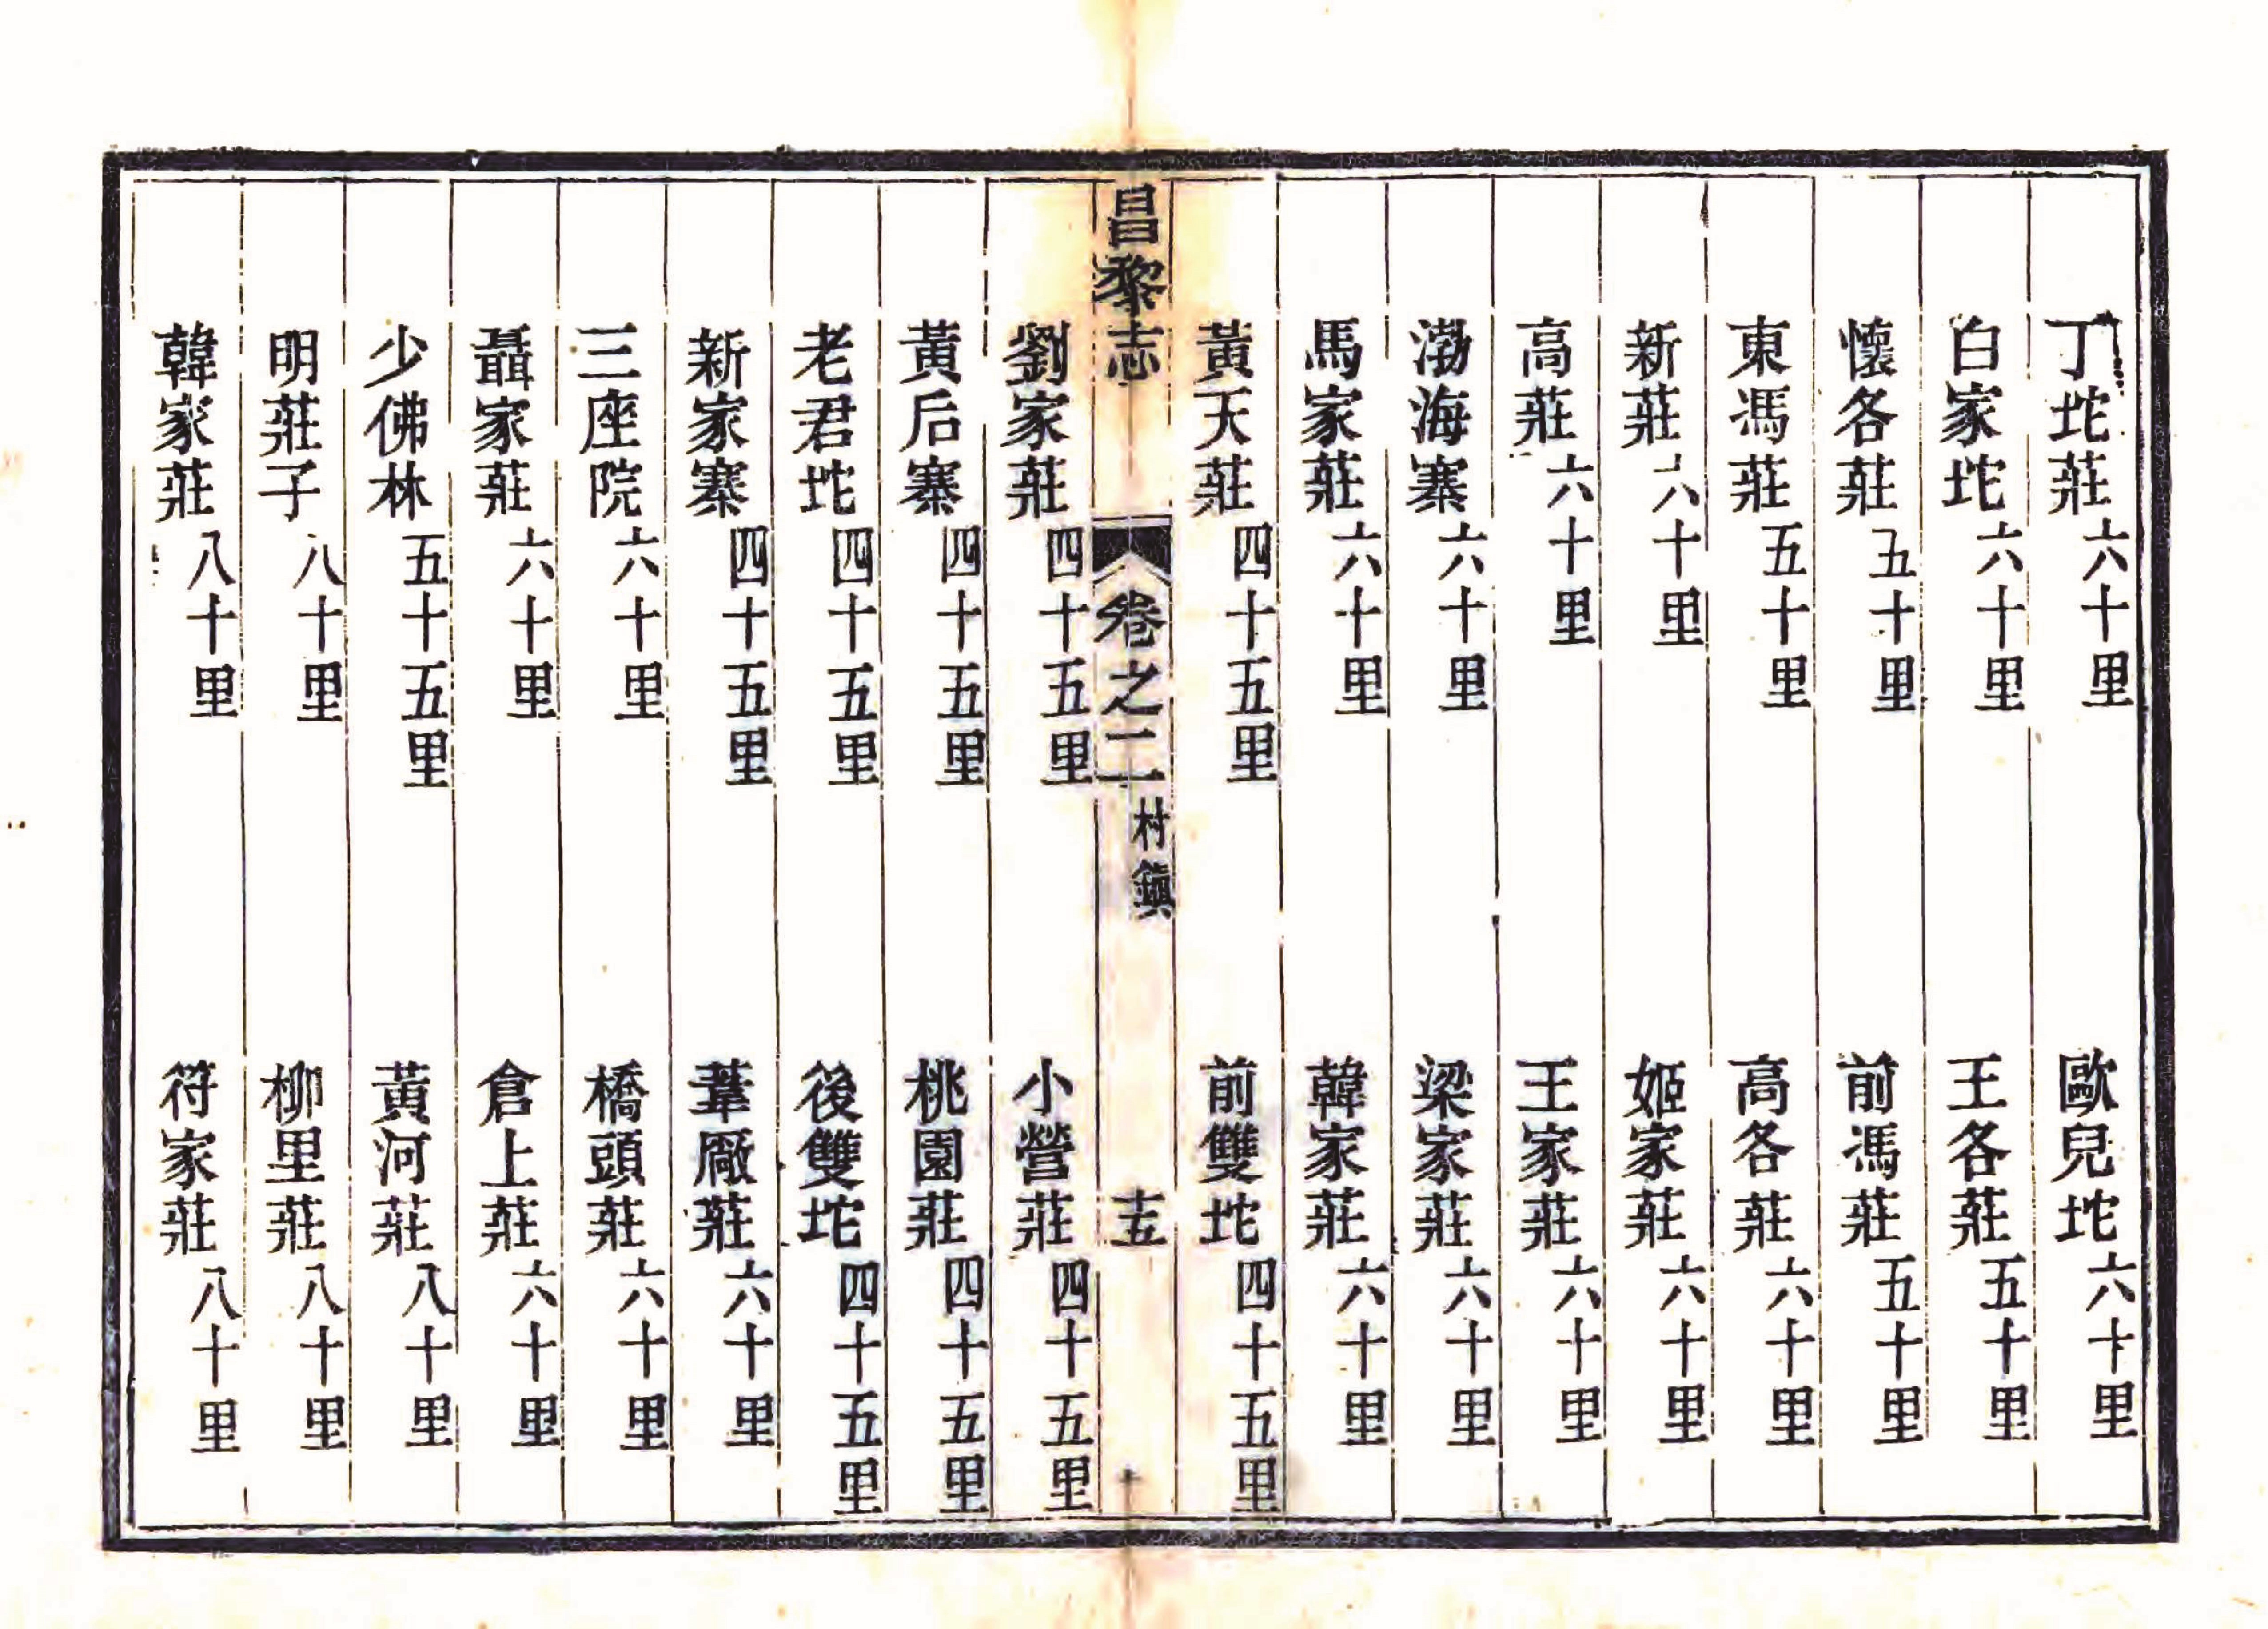 丁坨莊六十里 歐兒坨六十里
白家坨六十里 王各莊五十里
懷各莊五十里 前馮莊五十里
東馮莊五十里 高各莊六十里
新莊六十里 姬家莊六十里
高莊六十里 王家莊六十里
渤海寨六十里 梁家莊六十里
馬家莊六十里 韓家莊六十里
黃天莊四十五里 前雙坨四十五里
昌黎志 卷之二 村鎮 十五
劉家莊四十五里 小營莊四十五里
黃后寨四十五里 桃園莊四十五里
老君坨四十五里 後雙坨四十五里
新家寨四十五里 葦厰莊六十里
三座院六十里 橋頭莊六十里
聶家莊六十里 倉上莊六十里
少佛林五十五里 黃河莊八十里
明莊子八十里 柳里莊八十里
韓家莊八十里 符家莊八十里